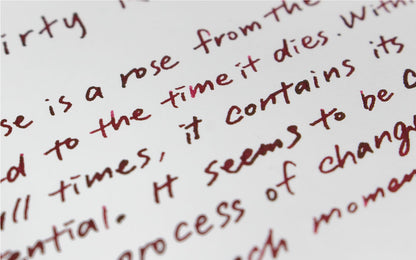 irty
se is a rose from the
d to the time it dies. With
ll times, it contains its
ential. It seems to be c
rocess of chang
ch momen